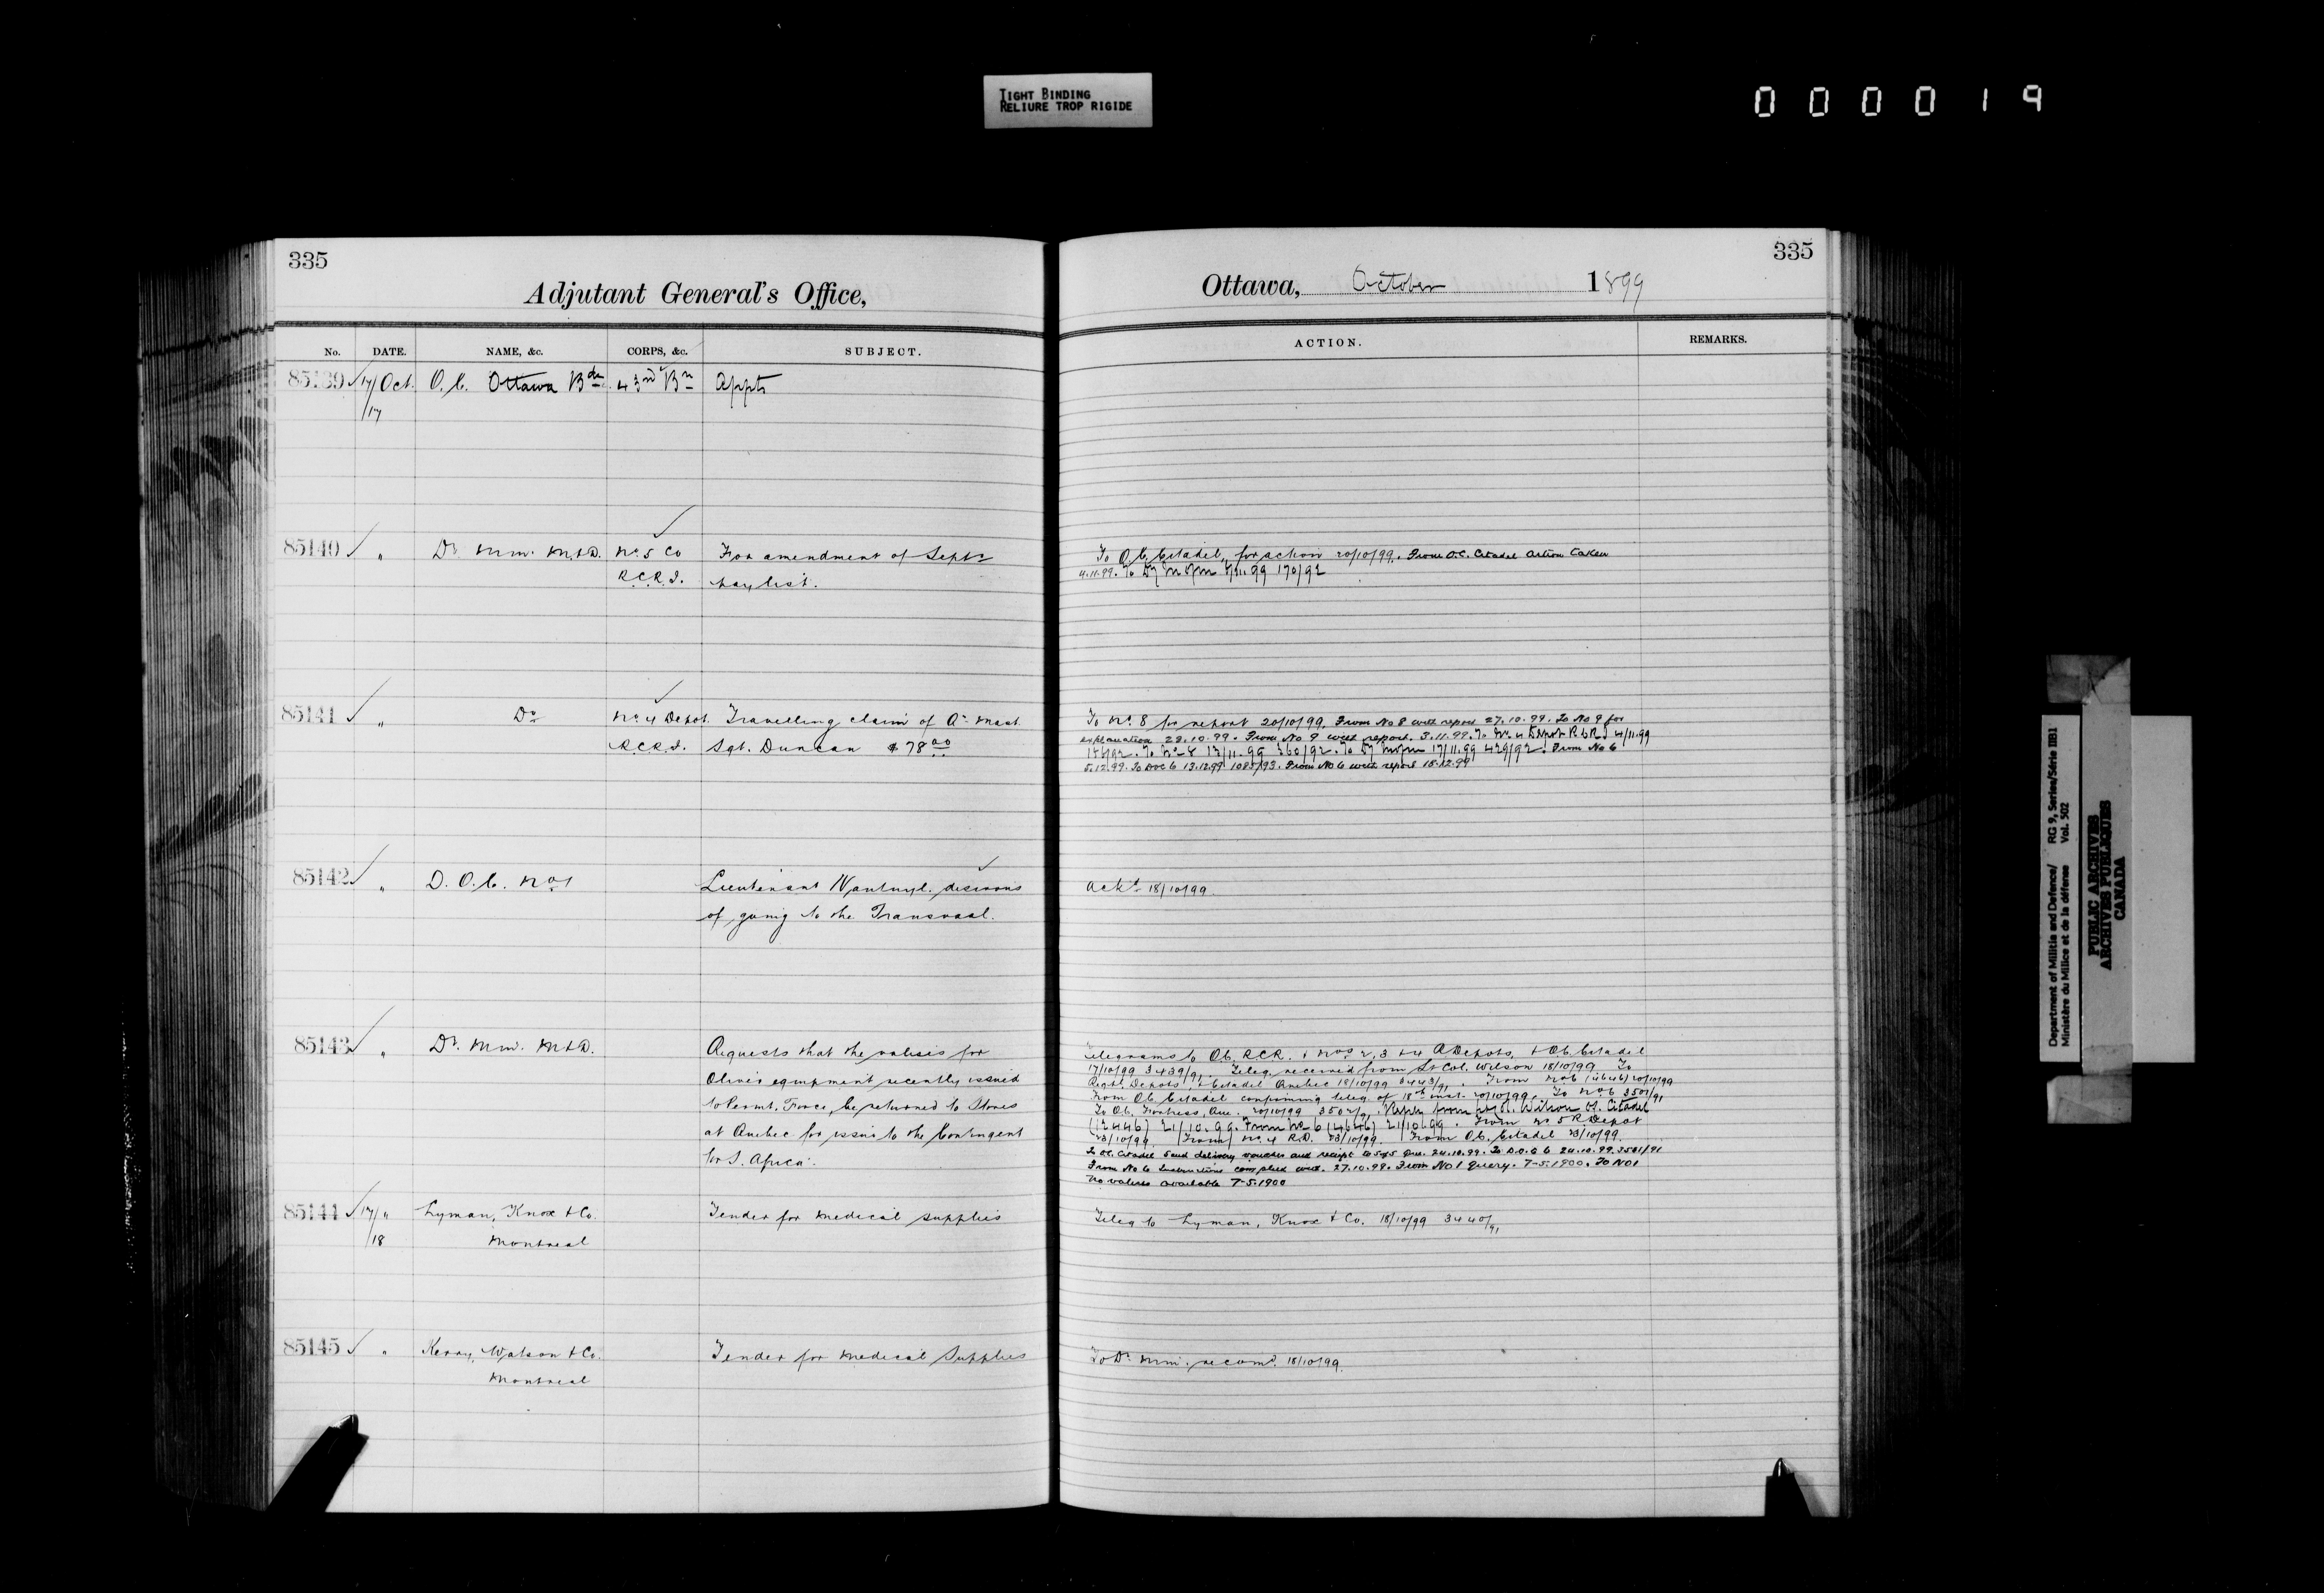 TIGHT BINDING
RELIURE TROP RIGIDE
000019
335
Adjutant General's Office,
No. DATE. NAME, &c. CORPS, &c. SUBJECT.
85139 17/Oct. O.C. Ottawa Bde 43rd Bn Appts
/17
85140 " Dr. Min. M.&D. No. 5 Co For amendment of Septr
R.C.R.I. pay list.
85141 " Do No. 4 Depot. Travelling claim of Qr. Mast.
R.C.R.I. Sgt. Duncan $78.00
85142 " D.O.C. No 1 Lieutenant desirous
of going to the Transvaal.
85143 " Dr. Min. M.&D. Requests that the valises for
Oliver equipment recently issued
to Permt. Force, be returned to Stores
at Quebec for issue to the Contingent
for S. Africa.
85144 17/ " Lyman, Knox & Co. Tender for medical supplies
/18 Montreal
85145 " Kerry, Watson & Co. Tender for medical supplies
Montreal
335
Ottawa, October 1899
ACTION. REMARKS.
To O.C. Citadel, for action 20/10/99. From O.C. Citadel action taken
4.11.99. To 170/92
To No. 8 for report 20/10/99. From No 8 with report 27.10.99. To No 9 for
explanation 28.10.99. From No 9 with report. 3.11.99. To No. 4 Depot R.C.R.I 4/11.99
To No 8 13/11.99 360/92. To 17/11.99 429/92. From No 6
5.12.99. To DOC 6 13.12.99 1085/93. From No 6 with report 15.12.99
Ackd 18/10/99.
Telegrams to O.C. R.C.R. & Nos 2, 3 & 4 Depots, & O.C. Citadel
17/10/99 3439/91. Teleg. received from Lt Col. Wilson 18/10/99 To
Regtl. Depots, & Citadel Quebec 18/10/99 3443/91. From No 6 (4646) 20/10/99
From O.C. Citadel confirming teleg. of 18th inst. 20/10/99. To No 6 3501/91
To O.C. Fortress, Que. 20/10/99 3502/91. Reply from Lt Col. Wilson O.C. Citadel
(12446) 21/10.99. From No 6 (4646) 21/10.99. From No 5 R Depot
23/10/99 From No. 4 R.D. 23/10/99. From O.C. Citadel 23/10/99.
To O.C. Citadel send delivery voucher and receipt to Que. 24.10.99. To D.O.C 6 24.10.99. 3501/91
From No 6 Instructions complied with. 27.10.99. From No 1 Query. 7-5.1900. To No 1
no valises available 7-5.1900
Teleg to Lyman, Knox & Co. 18/10/99 3440/91
To Dr. Min. recomd. 18/10/99.
Department of Militia and Defence/ RG 9, Series/Série IIB1
Ministère du Milice et de la défense Vol. 502
PUBLIC ARCHIVES
ARCHIVES PUBLIQUES
CANADA